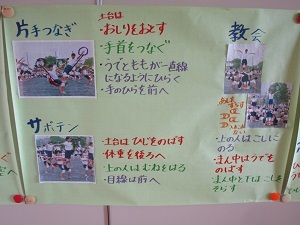 片手つなぎ
土台は
・おしりをおとす
・手首をつなぐ
・うでとももが一直線
になるようにひらく
・手のひらを前へ
サボテン
・土台はひじをのばす
・体重を後ろへ
・上の人はむねをはる
・目線は前へ
教会
・上の人はこしに
のる
・まん中はうでを
のばす
・まん中と下はこしを
そらす